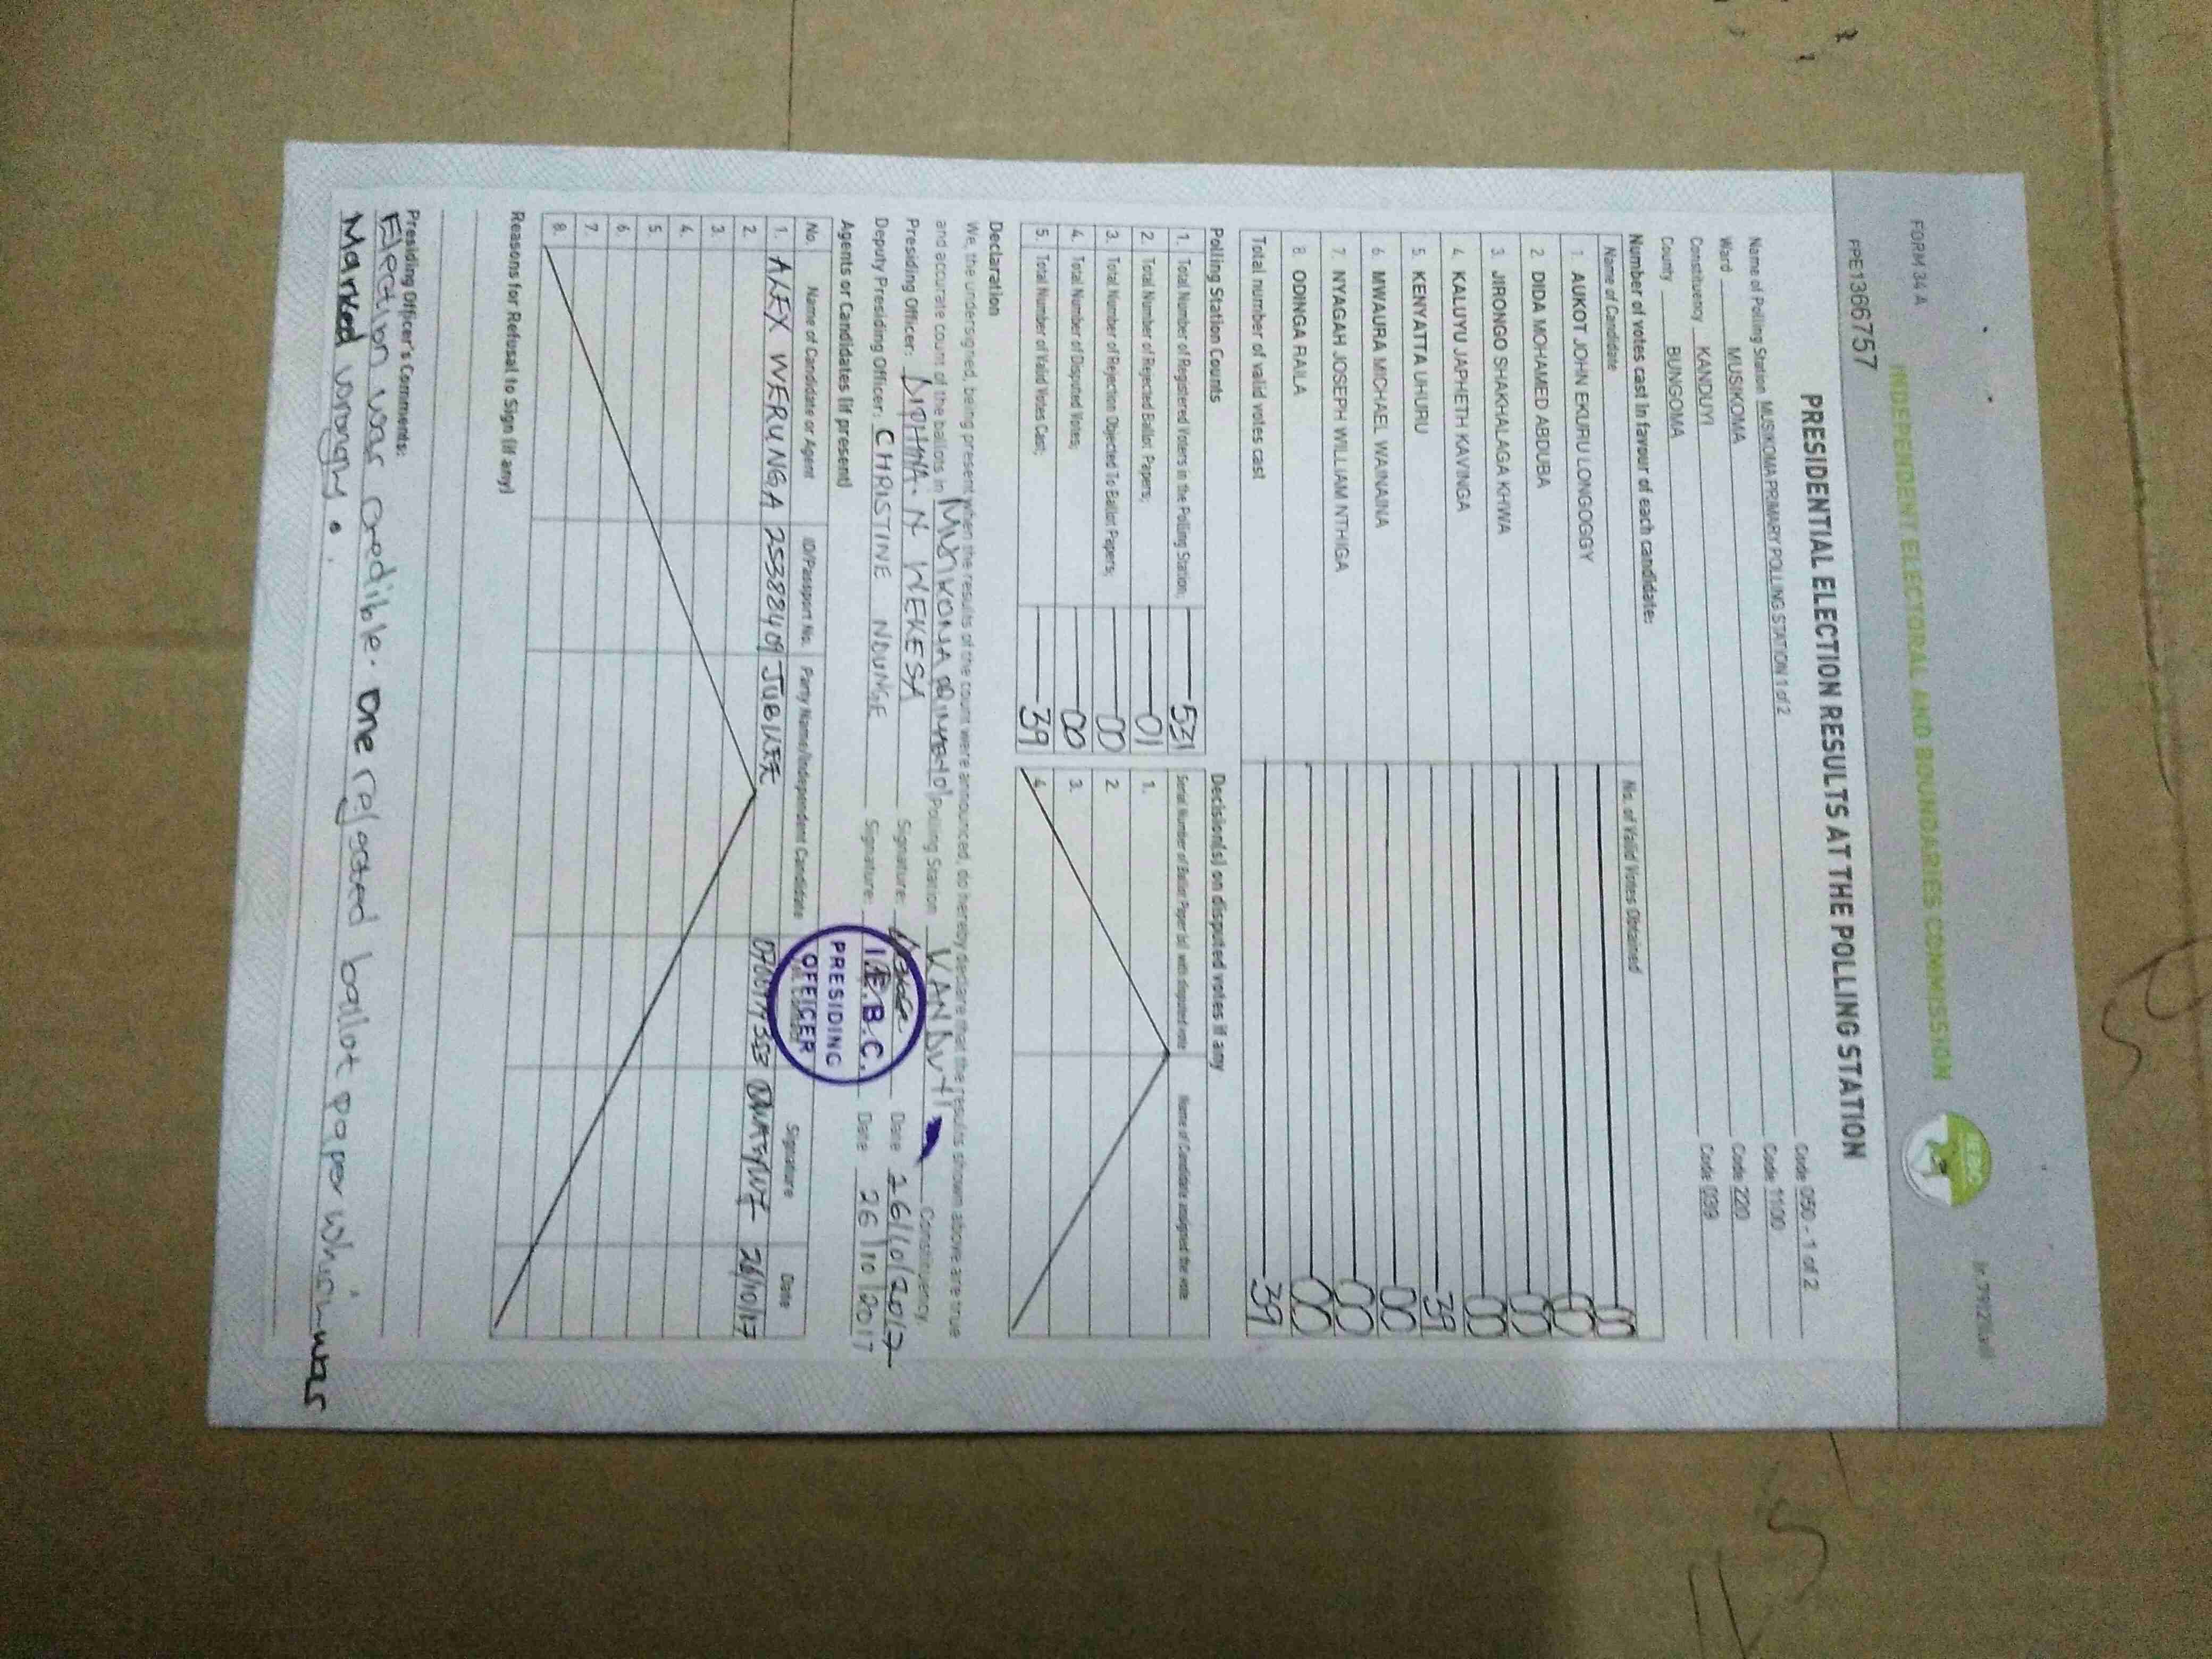 FORM 34 A
INDEPENDENT ELECTORAL AND BOUNDARIES COMMISSION
IEBC
PPE1366757
PRESIDENTIAL ELECTION RESULTS AT THE POLLING STATION
Name of Polling Station MUSIKOMA PRIMARY POLLING STATION 1 of 2 Code 050 - 1 of 2
Ward MUSIKOMA Code 1100
Constituency KANDUYI Code 220
County BUNGOMA Code 039
Number of votes cast in favour of each candidate:
Name of Candidate No. of Valid Votes Obtained
1. AUKOT JOHN EKURU LONGOGGY 00
2. DIDA MOHAMED ABDUBA 00
3. JIRONGO SHAKHALAGA KHWA 00
4. KALUYU JAPHETH KAVINGA 00
5. KENYATTA UHURU 39
6. MWAURA MICHAEL WAINAINA 00
7. NYAGAH JOSEPH WILLIAM NTHIGA 00
8. ODINGA RAILA 00
Total number of valid votes cast 39
Polling Station Counts
1. Total Number of Registered Voters in the Polling Station; 531
2. Total Number of Rejected Ballot Papers; 01
3. Total Number of Rejection Objected To Ballot Papers; 00
4. Total Number of Disputed Votes; 00
5. Total Number of Valid Votes Cast; 39
Decision(s) on disputed votes if any
Serial Number of Ballot Paper (s) with disputed vote Name of Candidate assigned the vote
1.
2.
3.
4.
Declaration
We, the undersigned, being present when the results of the count were announced, do hereby declare that the results shown above are true
and accurate count of the ballots in MUSIKOMA Polling Station KANDUYI Constituency.
Presiding Officer: N WEKESA Signature: Date 26/10/2017
Deputy Presiding Officer: CHRISTINE NDUNGE Signature: Date 26/10/2017
I.E.B.C.
PRESIDING
OFFICER
Agents or Candidates (if present)
No. Name of Candidate or Agent ID/Passport No. Party Name/Independent Candidate Signature Date
1. ALEX WERUNGA 25388409 JUBILEE 26/10/17
2.
3.
4.
5.
6.
7.
8.
Reasons for Refusal to Sign (if any)
Presiding Officer's Comments:
Election was credible. One rejected ballot paper which was
Marked wrongly.